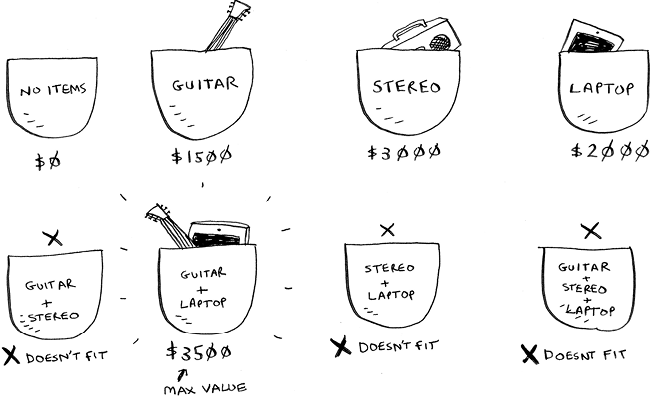 NO ITEMS
$0
GUITAR
$1500
STEREO
$3000
LAPTOP
$2000
GUITAR
+
STEREO
X DOESN'T FIT
GUITAR
+
LAPTOP
$3500
MAX VALUE
STEREO
+
LAPTOP
X DOESN'T FIT
GUITAR
+
STEREO
+
LAPTOP
X DOESNT FIT